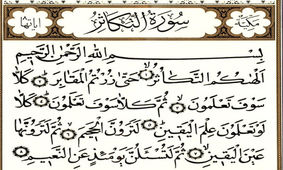 مكية سورة التكاثر آياتها
بِسْمِ اللهِ الرَّحْمٰنِ الرَّحِيْمِ
اَلْهٰىكُمُ التَّكَاثُرُ ۝ حَتّٰى زُرْتُمُ الْمَقَابِرَ ۝ كَلَّا
سَوْفَ تَعْلَمُوْنَ ۝ ثُمَّ كَلَّا سَوْفَ تَعْلَمُوْنَ ۝ كَلَّا
لَوْ تَعْلَمُوْنَ عِلْمَ الْيَقِيْنِ ۝ لَتَرَوُنَّ الْجَحِيْمَ ۝ ثُمَّ لَتَرَوُنَّهَا
عَيْنَ الْيَقِيْنِ ۝ ثُمَّ لَتُسْئَلُنَّ يَوْمَئِذٍ عَنِ النَّعِيْمِ